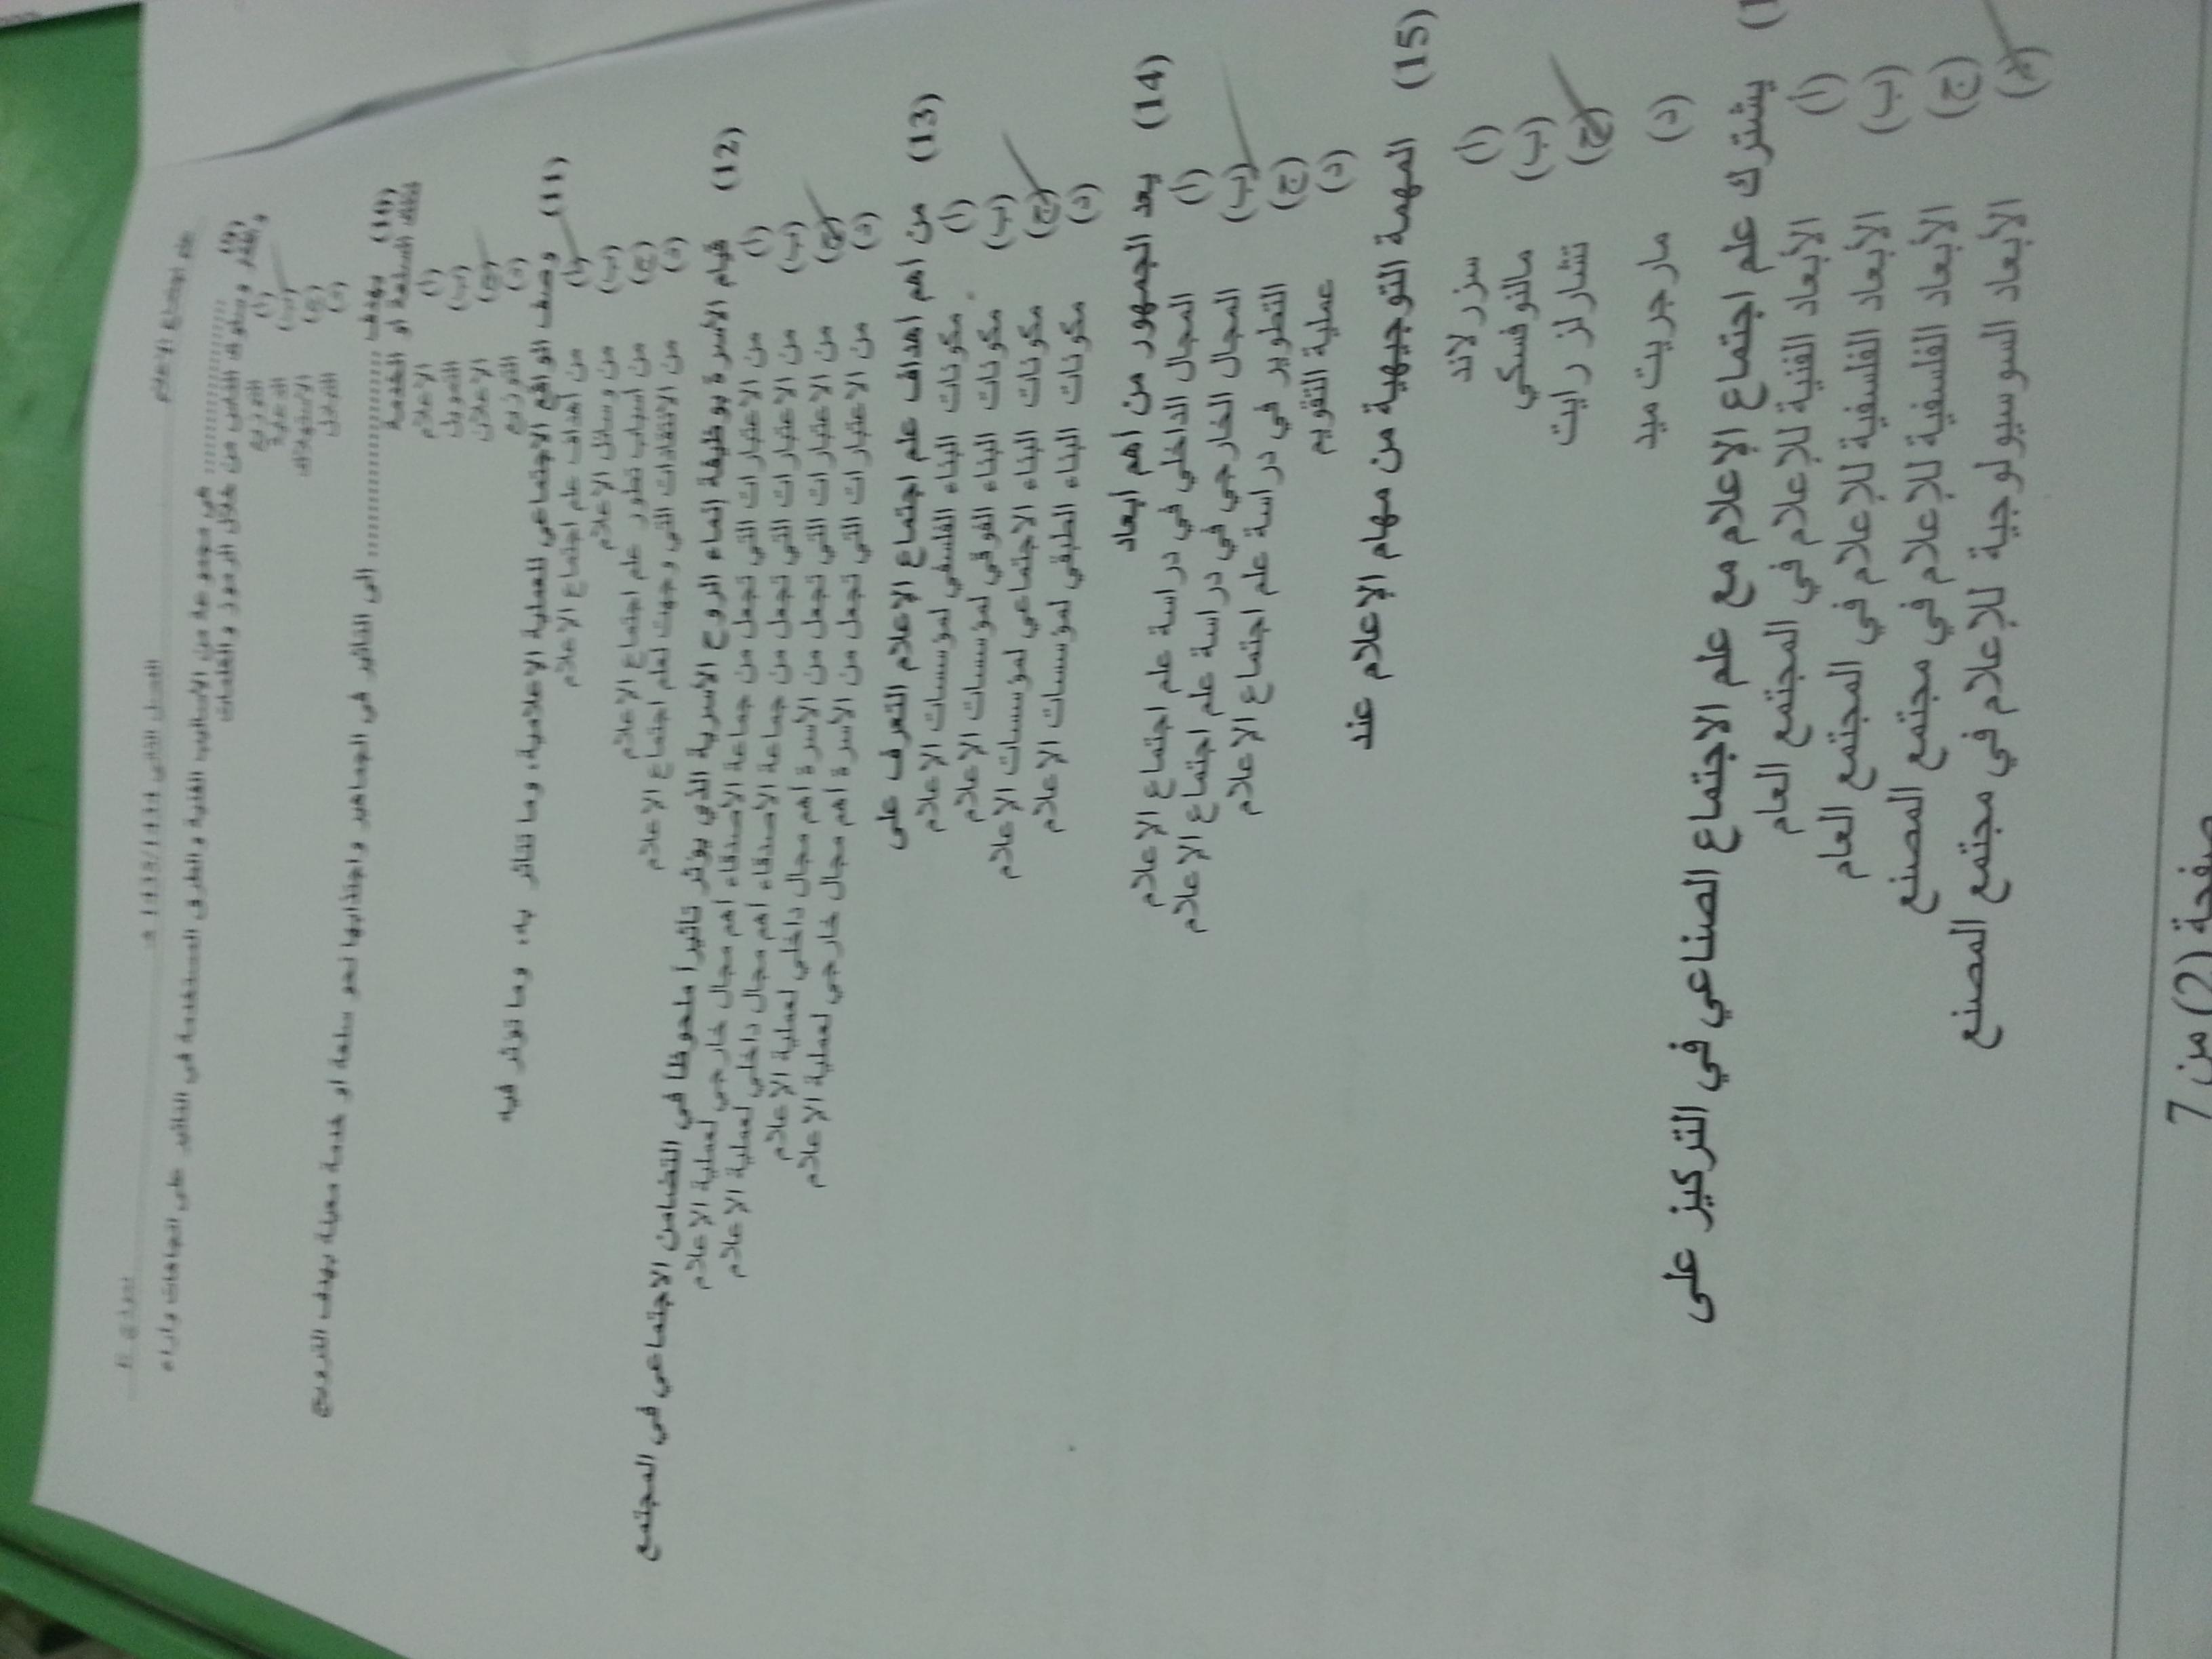 علم اجتماع الإعلام الفصل الثاني نموذج
(9) .......... هي مجموعة من الأساليب الفنية والطرق المستخدمة في التأثير على اتجاهات وآراء
وأفكار وسلوك الناس من خلال الرموز والكلمات
(أ) الترويح
(ب) الدعاية
(ج) الاستهلاك
(د)
(10) يهدف .......... إلى التأثير في الجماهير واجتذابها نحو سلعة أو خدمة معينة بهدف الترويج
لتلك السلعة أو الخدمة
(أ) الإعلام
(ب) التمويل
(ج) الإعلان
(د) التوزيع
(11) وصف الواقع الاجتماعي للعملية الإعلامية، وما تتأثر به، وما تؤثر فيه
(أ) من أهداف علم اجتماع الإعلام
(ب) من وسائل الإعلام
(ج) من أسباب تطور علم اجتماع الإعلام
(د) من الانتقادات التي وجهت لعلم اجتماع الإعلام
(12) قيام الأسرة بوظيفة إنماء الروح الأسرية الذي يؤثر تأثيراً ملحوظا في التضامن الاجتماعي في المجتمع
(أ) من الاعتبارات التي تجعل من جماعة الأصدقاء أهم مجال خارجي لعملية الإعلام
(ب) من الاعتبارات التي تجعل من جماعة الأصدقاء أهم مجال داخلي لعملية الإعلام
(ج) من الاعتبارات التي تجعل من الأسرة أهم مجال داخلي لعملية الإعلام
(د) من الاعتبارات التي تجعل من الأسرة أهم مجال خارجي لعملية الإعلام
(13) من أهم أهداف علم اجتماع الإعلام التعرف على
(أ) مكونات البناء الفلسفي لمؤسسات الإعلام
(ب) مكونات البناء الفوقي لمؤسسات الإعلام
(ج) مكونات البناء الاجتماعي لمؤسسات الإعلام
(د) مكونات البناء الطبقي لمؤسسات الإعلام
(14) يعد الجمهور من أهم أبعاد
(أ) المجال الداخلي في دراسة علم اجتماع الإعلام
(ب) المجال الخارجي في دراسة علم اجتماع الإعلام
(ج) التطوير في دراسة علم اجتماع الإعلام
(د) عملية التقويم
(15) المهمة التوجيهية من مهام الإعلام عند
(أ) سزرلاند
(ب) مالنوفسكي
(ج) تشارلز رايت
(د) مارجريت ميد
يشترك علم اجتماع الإعلام مع علم الاجتماع الصناعي في التركيز على
(أ) الأبعاد الفنية للإعلام في المجتمع العام
(ب) الأبعاد الفلسفية للإعلام في المجتمع العام
(ج) الأبعاد الفلسفية للإعلام في مجتمع المصنع
(د) الأبعاد السوسيولوجية للإعلام في مجتمع المصنع
صفحة (2) من 7